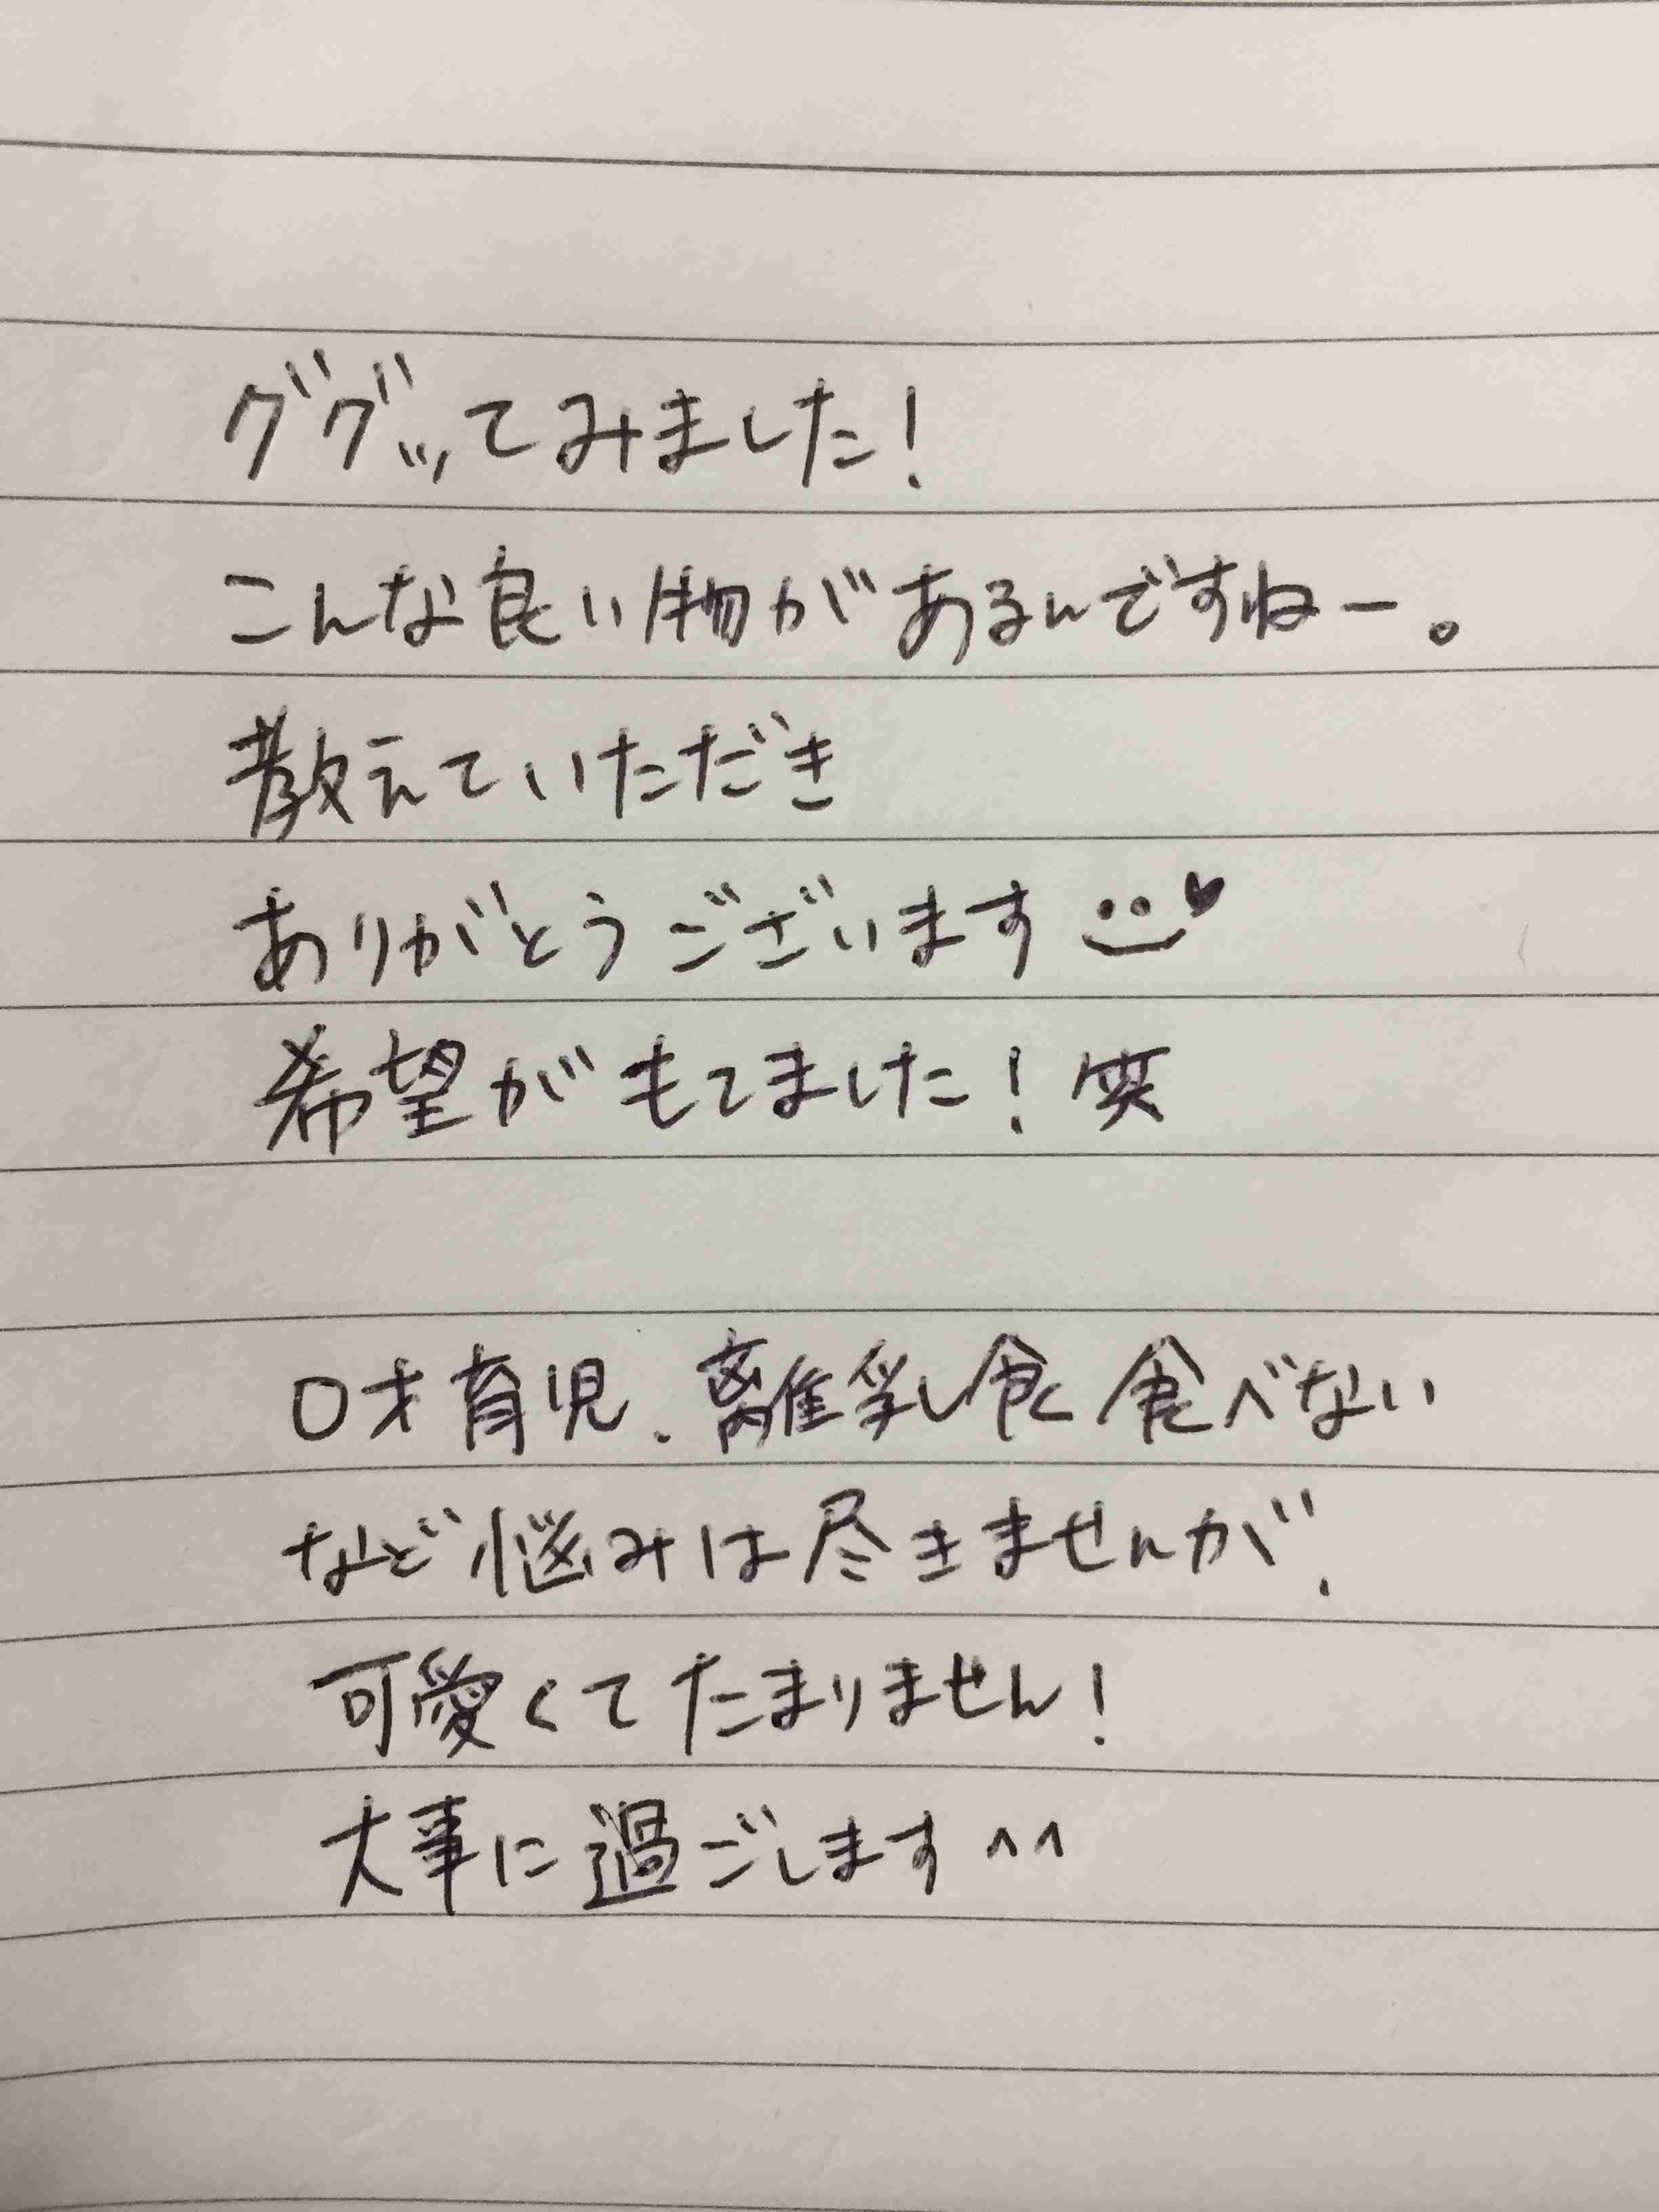 ググッてみました!
こんな良い物があるんですねー。
教えていただき
ありがとうございます
希望がもてました!笑
0才育児、離乳食食べない
など悩みは尽きませんが、
可愛くてたまりません!
大事に過ごします^^